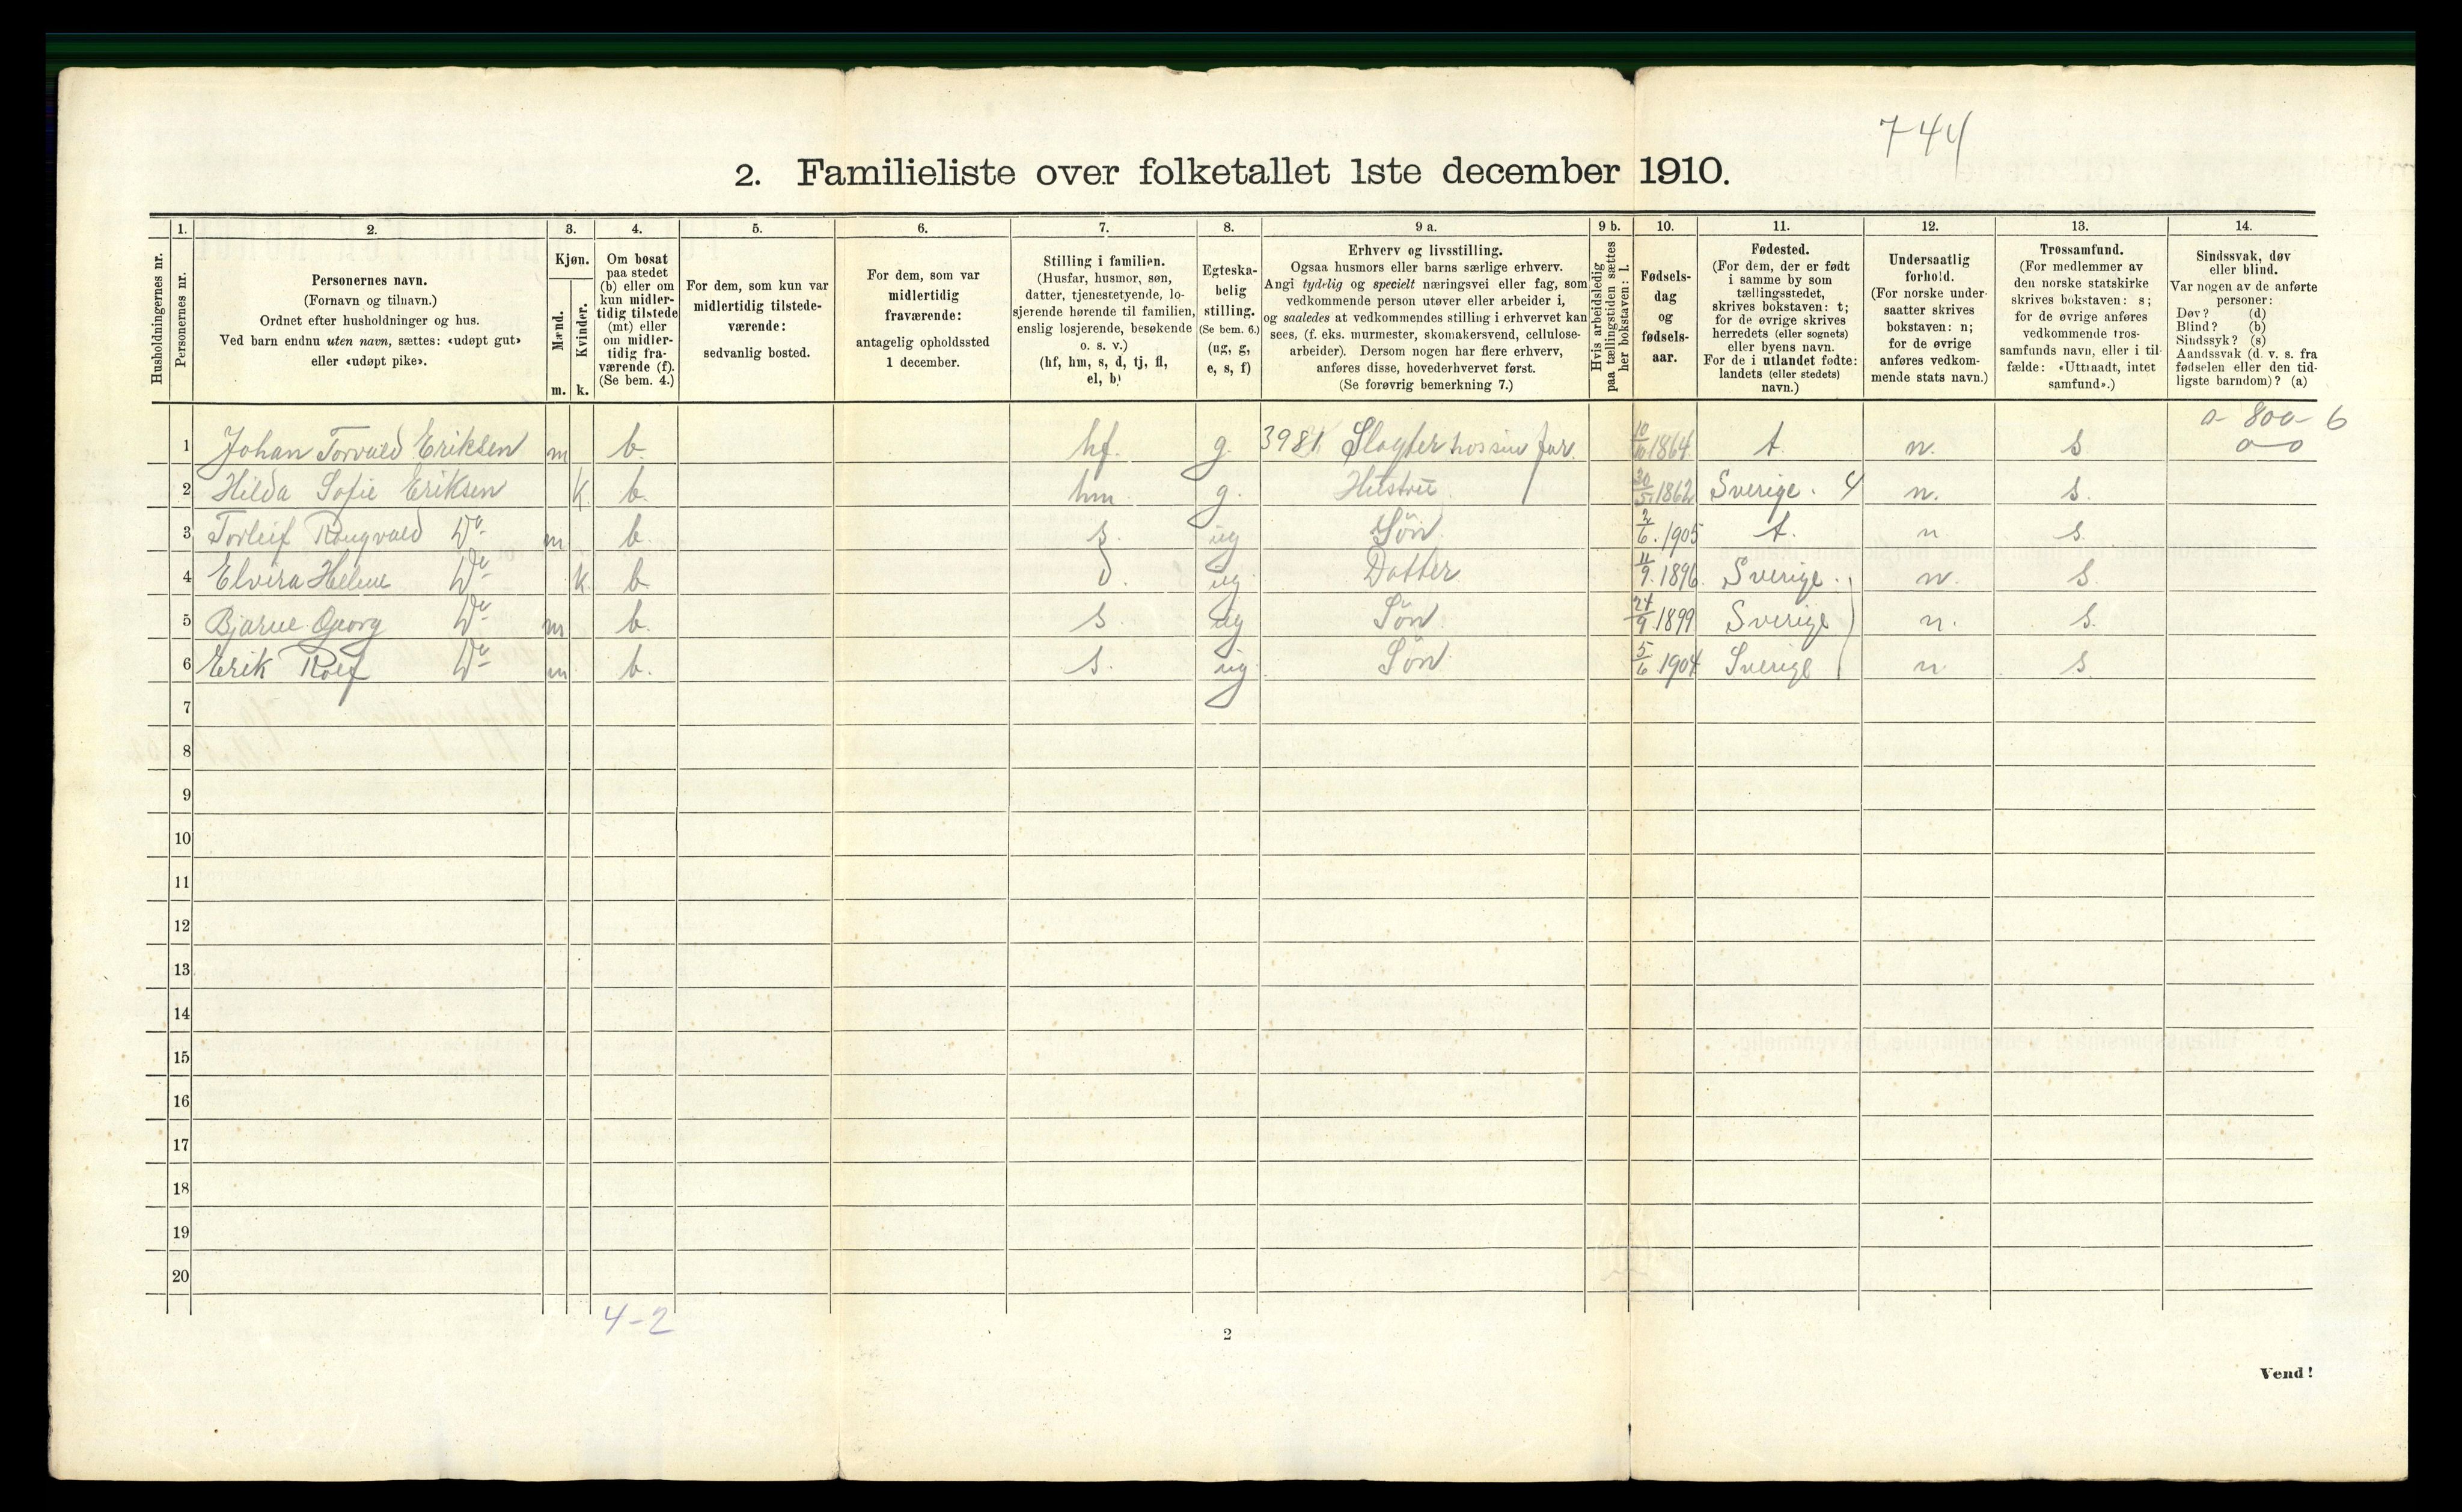 744
2. Familieliste over folketallet 1ste december 1910.
1. 2. 3. 4. 5. 6. 7. 8. 9 a. 9 b. 10. 11. 12. 13. 14.
Husholdningernes nr.
Personernes nr.
Personernes navn.
(Fornavn og tilnavn.)
Ordnet efter husholdninger og hus.
Ved barn endnu uten navn, sættes: «udøpt gut»
eller «udøpt pike».
Kjøn.
Mænd.
m.
Kvinder.
k.
Om bosat
paa stedet
(b) eller om
kun midler-
tidig tilstede
(mt) eller
om midler-
tidig fra-
værende (f).
(Se bem. 4.)
For dem, som kun var
midlertidig tilstede-
værende:
sedvanlig bosted.
For dem, som var
midlertidig
fraværende:
antagelig opholdssted
1 december.
Stilling i familien.
(Husfar, husmor, søn,
datter, tjenestetyende, lo-
sjerende hørende til familien,
enslig losjerende, besøkende
o. s. v.)
(hf, hm, s, d, tj, fl,
el, b)
Egteska-
belig
stilling.
(Se bem. 6.)
(ug, g,
e, s, f)
Erhverv og livsstilling.
Ogsaa husmors eller barns særlige erhverv.
Angi tydelig og specielt næringsvei eller fag, som
vedkommende person utøver eller arbeider i,
og saaledes at vedkommendes stilling i erhvervet kan
sees, (f. eks. murmester, skomakersvend, cellulose-
arbeider). Dersom nogen har flere erhverv,
anføres disse, hovederhvervet først.
(Se forøvrig bemerkning 7.)
Hvis arbeidsledig
paa tællingstiden sættes
her bokstaven: l.
Fødsels-
dag
og
fødsels-
aar.
Fødested.
(For dem, der er født
i samme by som
tællingsstedet,
skrives bokstaven: t;
for de øvrige skrives
herredets (eller sognets)
eller byens navn.
For de i utlandet fødte:
landets (eller stedets)
navn.)
Undersaatlig
forhold.
(For norske under-
saatter skrives
bokstaven: n;
for de øvrige
anføres vedkom-
mende stats navn.)
Trossamfund.
(For medlemmer av
den norske statskirke
skrives bokstaven: s;
for de øvrige anføres
vedkommende tros-
samfunds navn, eller i til-
fælde: «Uttraadt, intet
samfund».)
Sindssvak, døv
eller blind.
Var nogen av de anførte
personer:
Døv? (d)
Blind? (b)
Sindssyk? (s)
Aandssvak (d. v. s. fra
fødselen eller den tid-
ligste barndom)? (a)
0-800-6
1 Johan Torvald Eriksen m b. hf. g. 3981 Slagter hos sin far. 1864 t. n. s. 0-0
2 Hilda Sofie Eriksen k. b. hm. g. Hustru 30/5 1862 Sverige. 4 n. s.
3 Torleif Rangvald Do m b. s. ug Søn 2/6. 1905 t. n s.
4 Elvira Helene Do k. b. d. ug Datter 11/9. 1896. Sverige. n. s.
5 Bjarne Georg Do m b. s. ug Søn 24/9. 1899 Sverige n. s.
6 Erik Rolf Do m b. s. ug Søn 5/6 1904 Sverige n. s.
7
8
9
10
11
12
13
14
15
16
17
18
19
20
4-2
2
Vend!